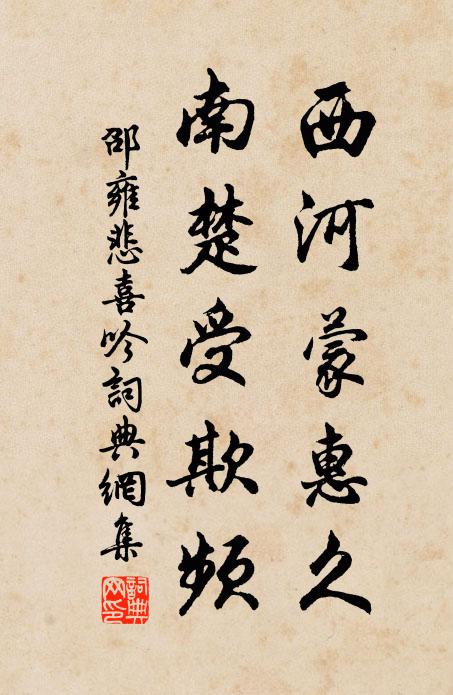 西河蒙惠久
南楚受欺頻
邵雍悲喜吟詞典網集
詞典网印